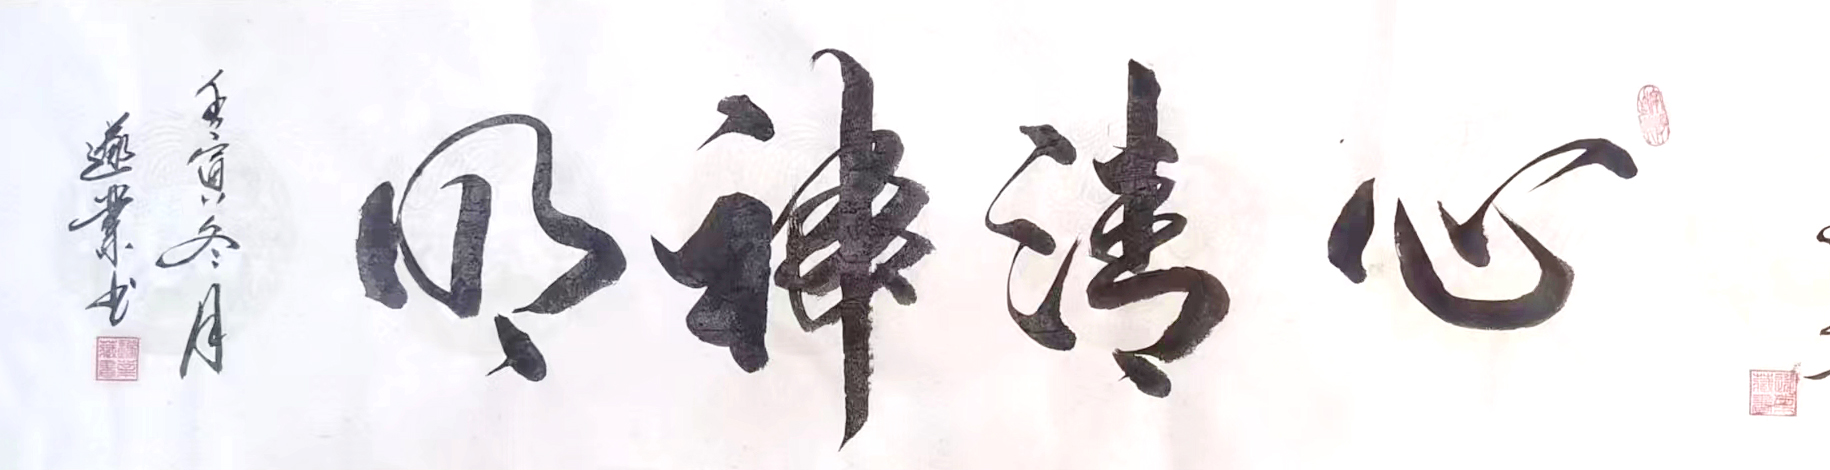 心清神明
壬寅冬月
燕業书